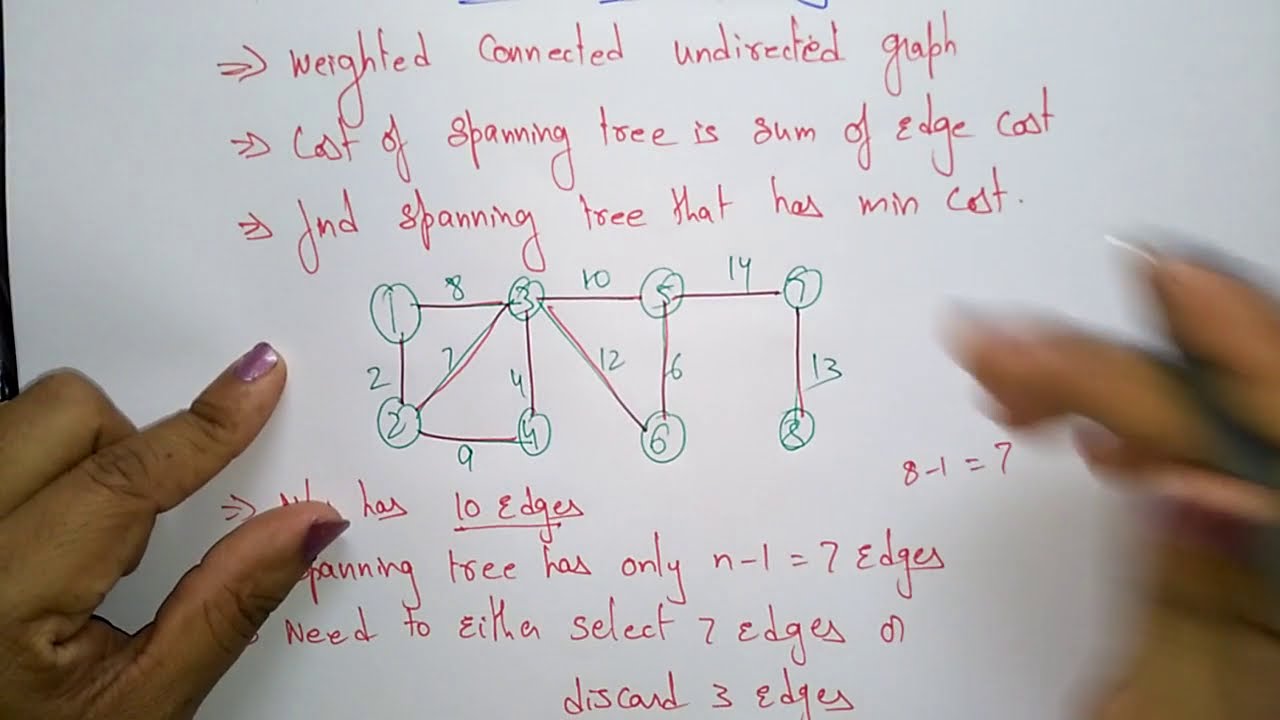 ⇒ Weighted Connected undirected graph
⇒ Cost of spanning tree is sum of Edge cost
⇒ find spanning tree that has min cost.
8 10 14
1 3 5 7
2 7 4 12 6 13
2 4 6 8
9
8-1 = 7
⇒ has 10 Edges
spanning tree has only n-1 = 7 Edges
Need to Either select 7 Edges or
discard 3 Edges